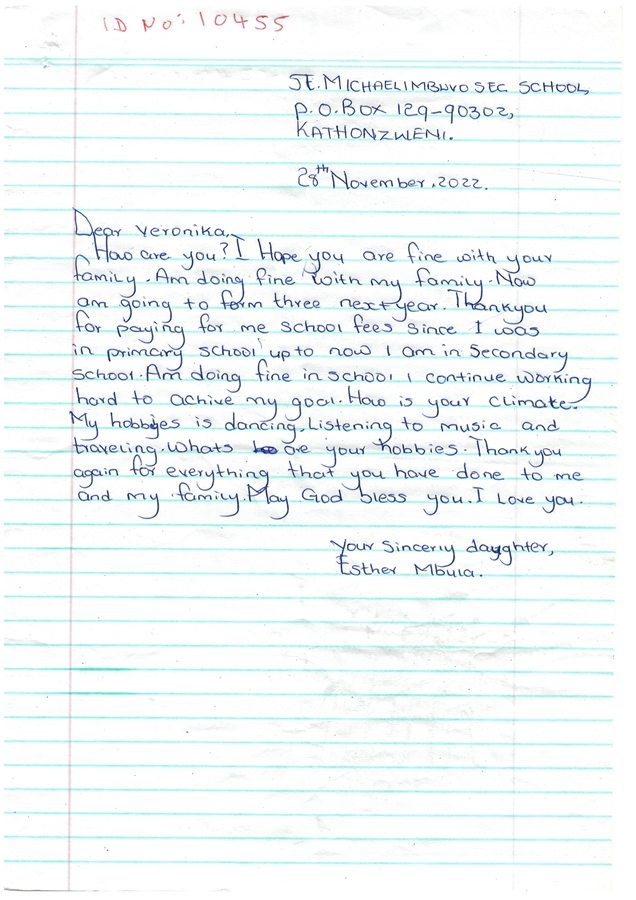 ID No: 10455
ST. MICHAEL IMBUVO SEC SCHOOL,
P.O. BOX 129-90302,
KATHONZWENI.
28th November, 2022.
Dear Veronika,
How are you? I Hope you are fine with your
family. Am doing fine with my family. Now
am going to form three next year. Thankyou
for paying for me school fees since I was
in primary school up to now I am in Secondary
School. Am doing fine in school I continue working
hard to achive my goal. How is your climate.
My hobbies is dancing, Listening to music and
traveling. Whats are your hobbies. Thankyou
again for everything that you have done to me
and my family. May God bless you. I Love you.
Your Sincerly daughter,
Esther Mbula.